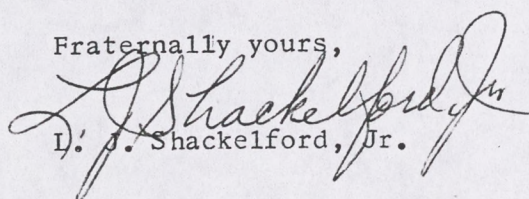 Fraternally yours,
L J Shackelford, Jr
L. J. Shackelford, Jr.